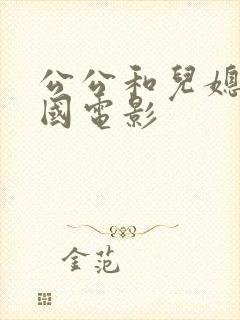 公公和兒媳
國電影
金范